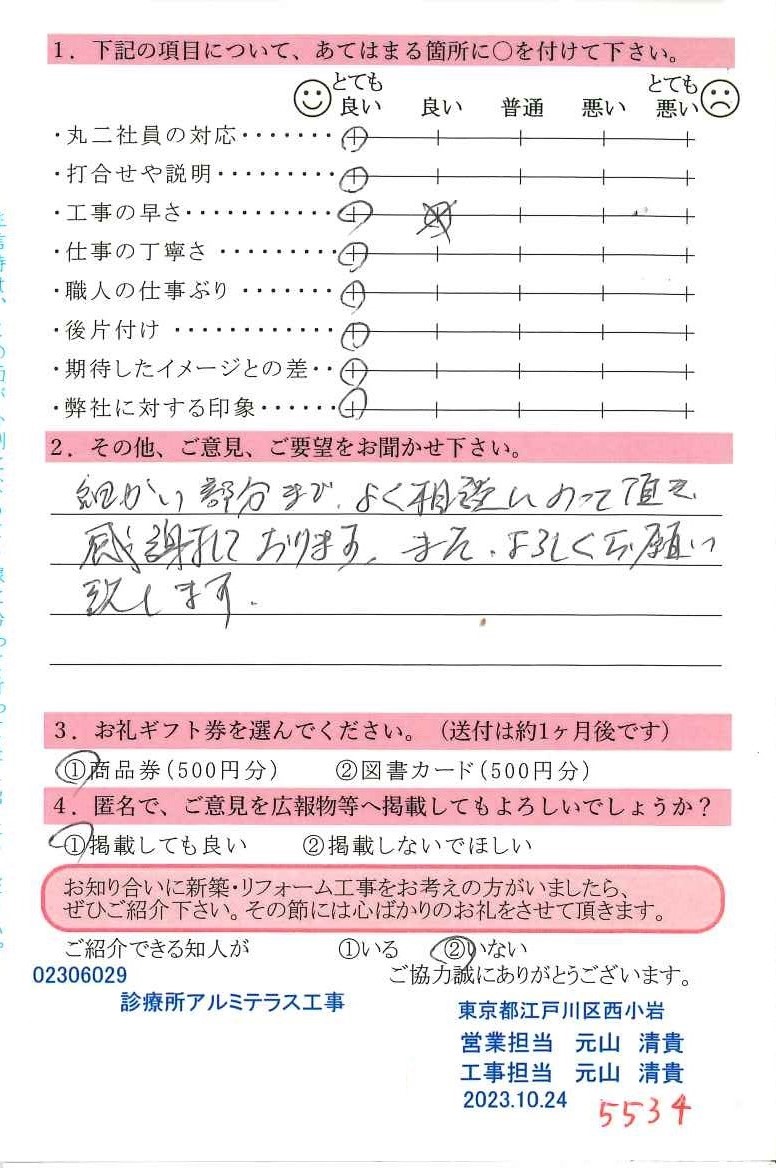 1．下記の項目について、あてはまる箇所に○を付けて下さい。
とても良い 良い 普通 悪い とても悪い
・丸二社員の対応・・・・・・・
・打合せや説明・・・・・・・・・
・工事の早さ・・・・・・・・・・・
・仕事の丁寧さ・・・・・・・・・
・職人の仕事ぶり・・・・・・・
・後片付け・・・・・・・・・・・・
・期待したイメージとの差・・
・弊社に対する印象・・・・・・
2．その他、ご意見、ご要望をお聞かせ下さい。
細かい部分まで、よく相談にのって頂き、
感謝しております。また、よろしくお願い
致します。
3．お礼ギフト券を選んでください。（送付は約1ヶ月後です）
①商品券（500円分） ②図書カード（500円分）
4．匿名で、ご意見を広報物等へ掲載してもよろしいでしょうか？
①掲載しても良い ②掲載しないでほしい
お知り合いに新築・リフォーム工事をお考えの方がいましたら、
ぜひご紹介下さい。その節には心ばかりのお礼をさせて頂きます。
ご紹介できる知人が ①いる ②いない
ご協力誠にありがとうございます。
02306029
診療所アルミテラス工事
東京都江戸川区西小岩
営業担当 元山 清貴
工事担当 元山 清貴
2023.10.24
5534